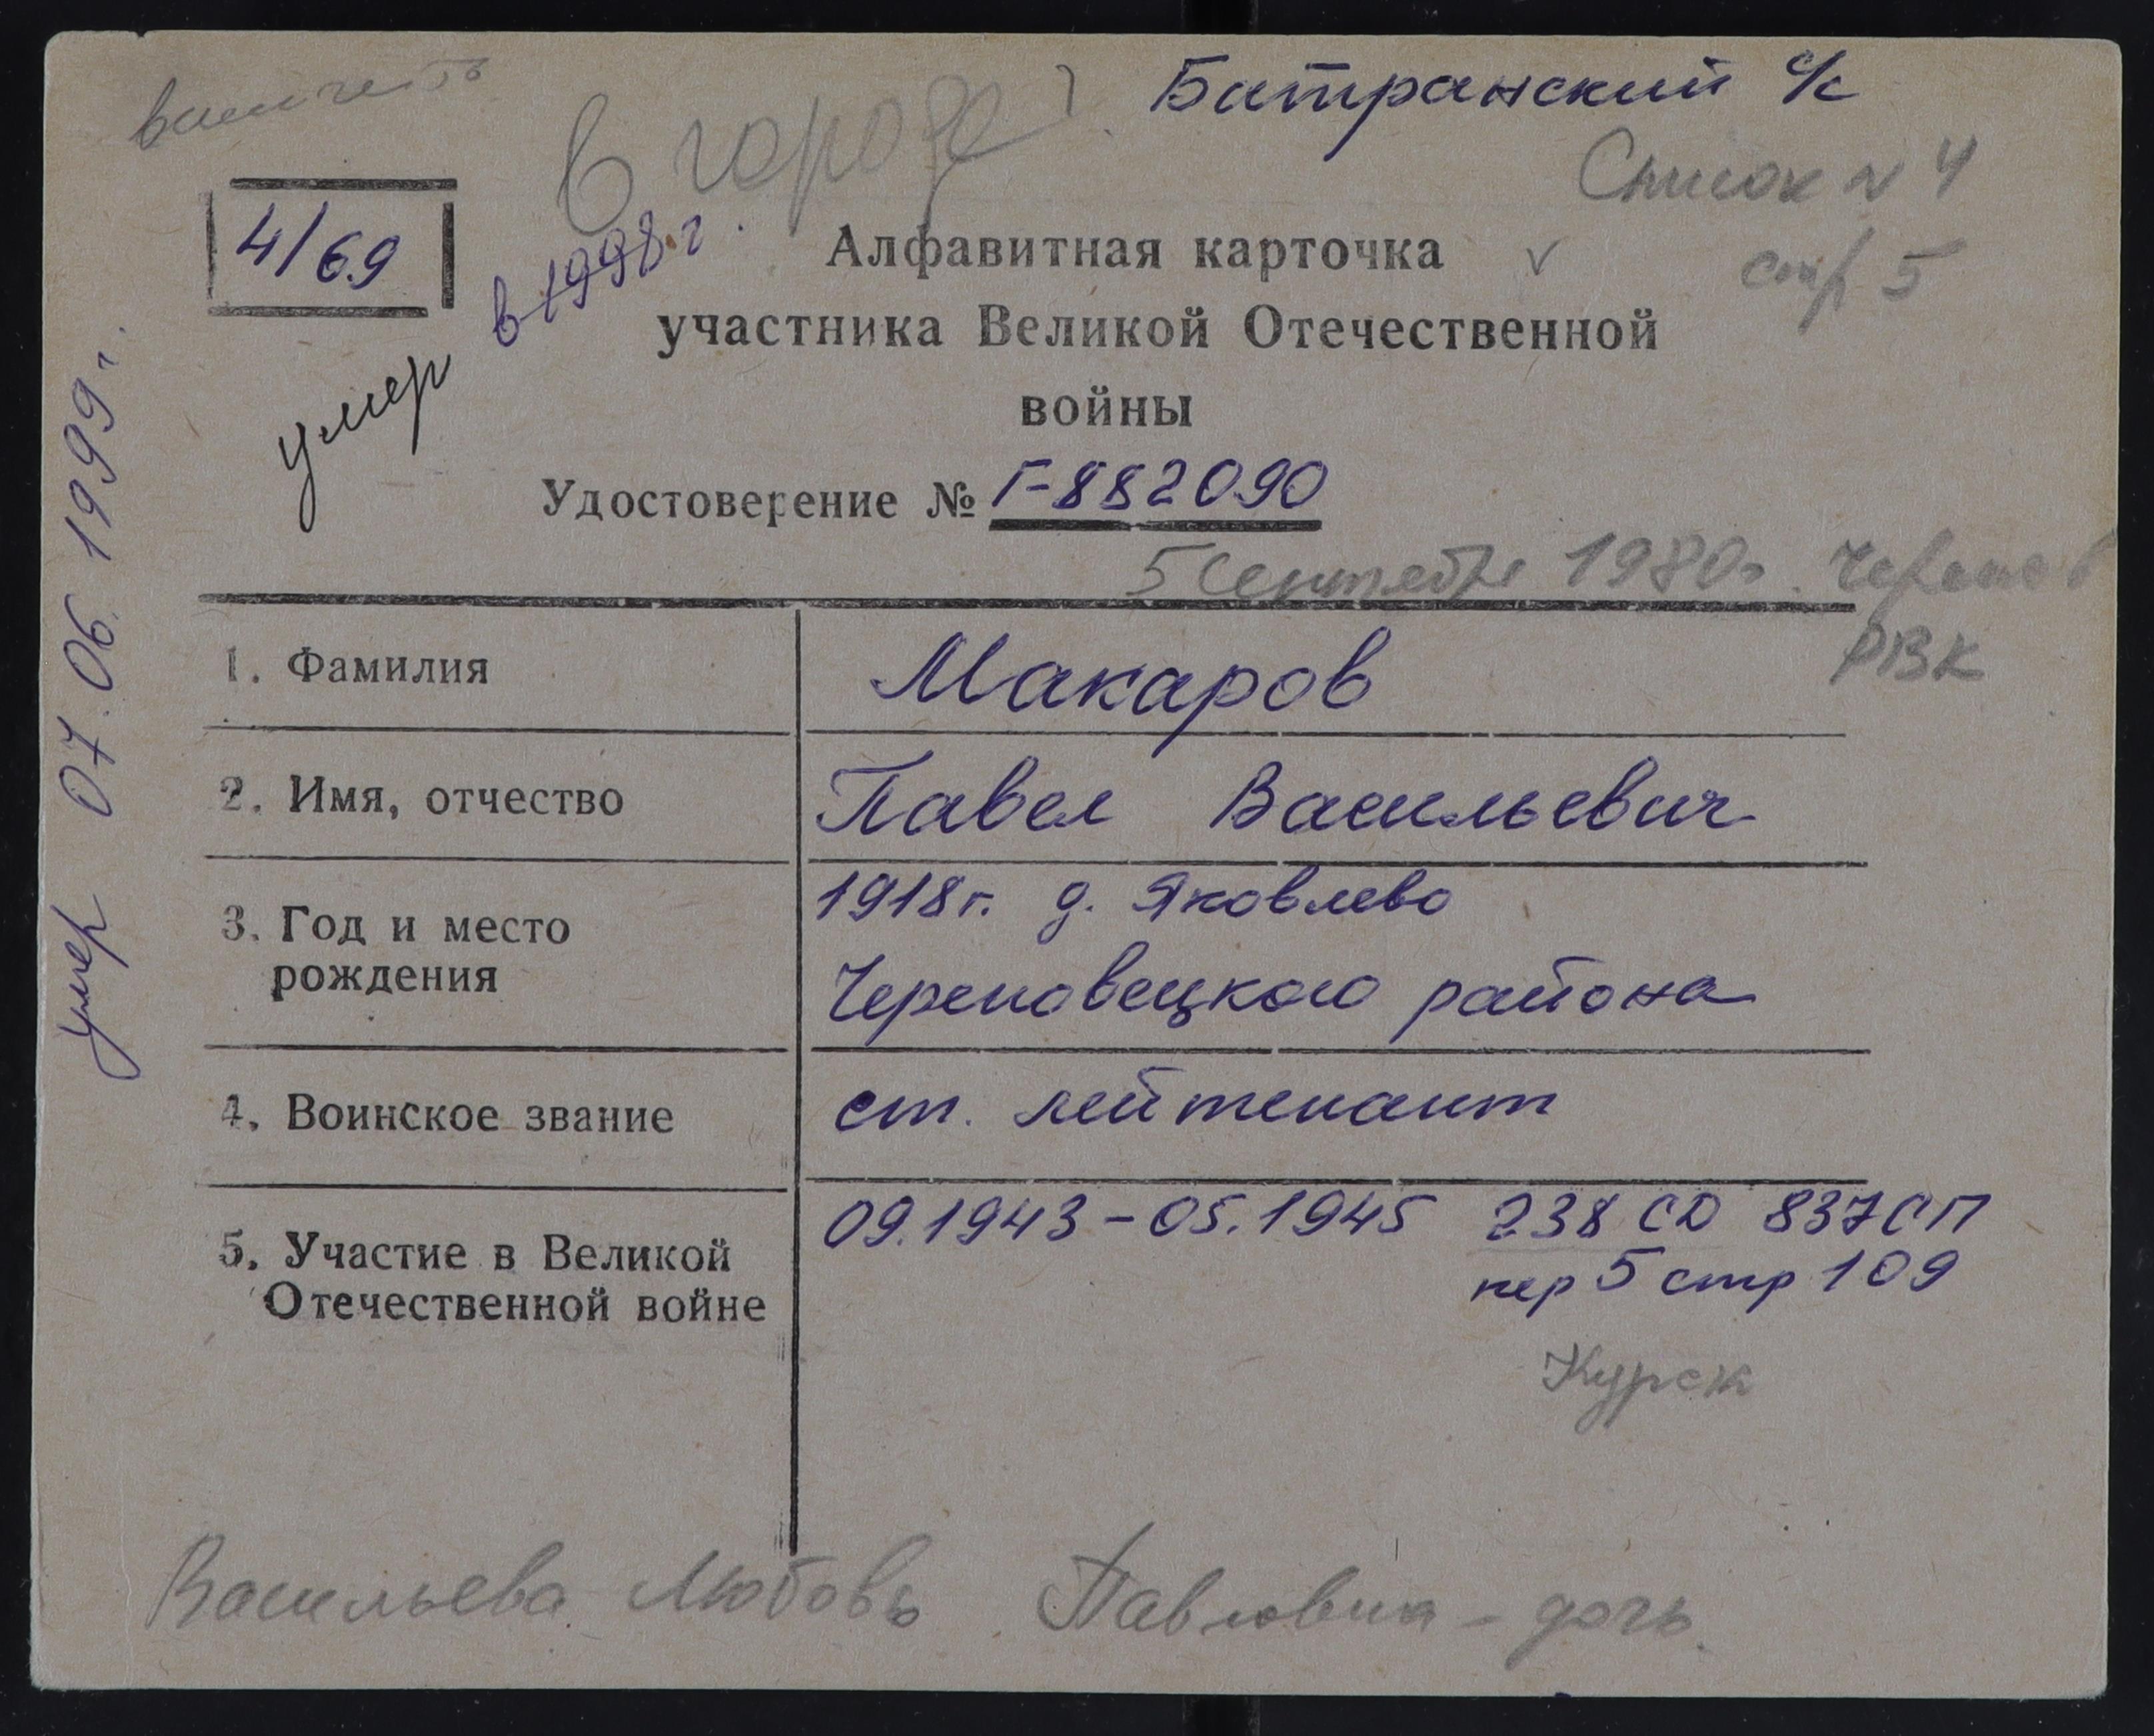 в город
Батранский с/с
Список N 4
стр 5
4/69
умер в 1998 г.
Алфавитная карточка
участника Великой Отечественной
войны
Удостоверение № Г-882090
5 сентября 1980г. Черепов
РВК
умер 07.06.1999г.
1. Фамилия Макаров
2. Имя, отчество Павел Васильевич
3. Год и место 1918г. д. Яковлево
рождения Череповецкого района
4. Воинское звание ст. лейтенант
5. Участие в Великой 09.1943-05.1945 238 СД 837СП
Отечественной войне пер 5 стр 109
Курск
Васильева Любовь Павловна - дочь.